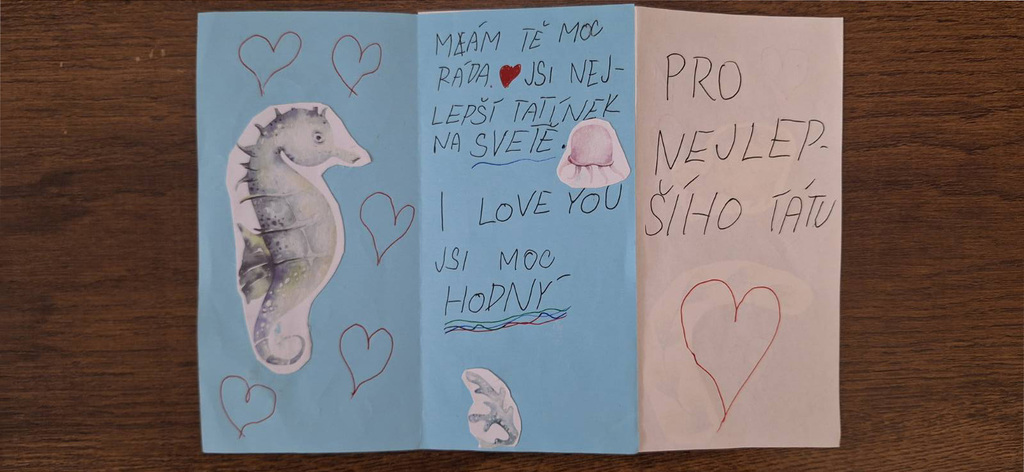 MÁM TĚ MOC
RÁDA. JSI NEJ-
LEPŠÍ TATÍNEK
NA SVETĚ.
I LOVE YOU
JSI MOC
HODNÝ
PRO
NEJLEP-
ŠÍHO TÁTU